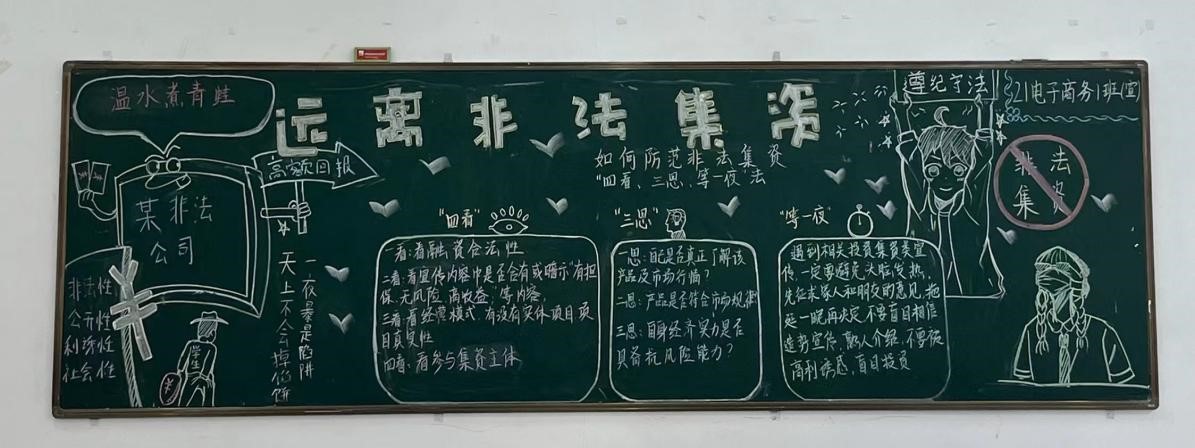 温水煮青蛙
远离非法集资
遵纪守法
21电子商务1班(宣)
如何防范非法集资
"四看、三思、等一夜"法
高额回报
某非法
公司
非法
集资
非法性
公开性
利诱性
社会性
学生
天上不会掉馅饼
一夜暴富是陷阱
"四看"
一看:看融资合法性
二看:看宣传内容中是否含有或暗示"有担
保、无风险、高收益"等内容,
三看:看经营模式,有没有实体项目项
目真实性
四看:看参与集资主体
"三思"
一思:自己是否真正了解该
产品及市场行情?
二思:产品是否符合市场规律
三思:自身经济实力是否
具备抗风险能力?
"等一夜"
遇到相关投资集资类宣
传,一定要避免头脑发热,
先征求家人和朋友的意见,拖
延一晚再决定。不要盲目相信
造势宣传、熟人介绍,不要被
高利诱惑,盲目投资